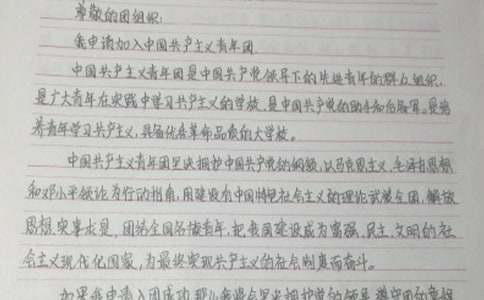 尊敬的团组织:
我申请加入中国共产主义青年团.
中国共产主义青年团是中国共产党领导下的先进青年的群众组织,
是广大青年在实践中学习共产主义的学校,是中国共产党的助手和后备军.是培
养青年学习共产主义,具备优店革命品质的大学校。
中国共产主义青年团坚决拥护中国共产党的纲领,以马克思主义,毛泽东思想
和邓小平领论为行动指南,用建设有中国特色社会主义的理论武装全团,解放
思想,实事求是,团结全国各族青年,把我国建设成为富强,民主,文明的社
会主义现代化国家,为最终实现共产主义的社会制度而奋斗。
如果我申请入团成功,那么我将会坚决拥护党的领导,遵守团的章程